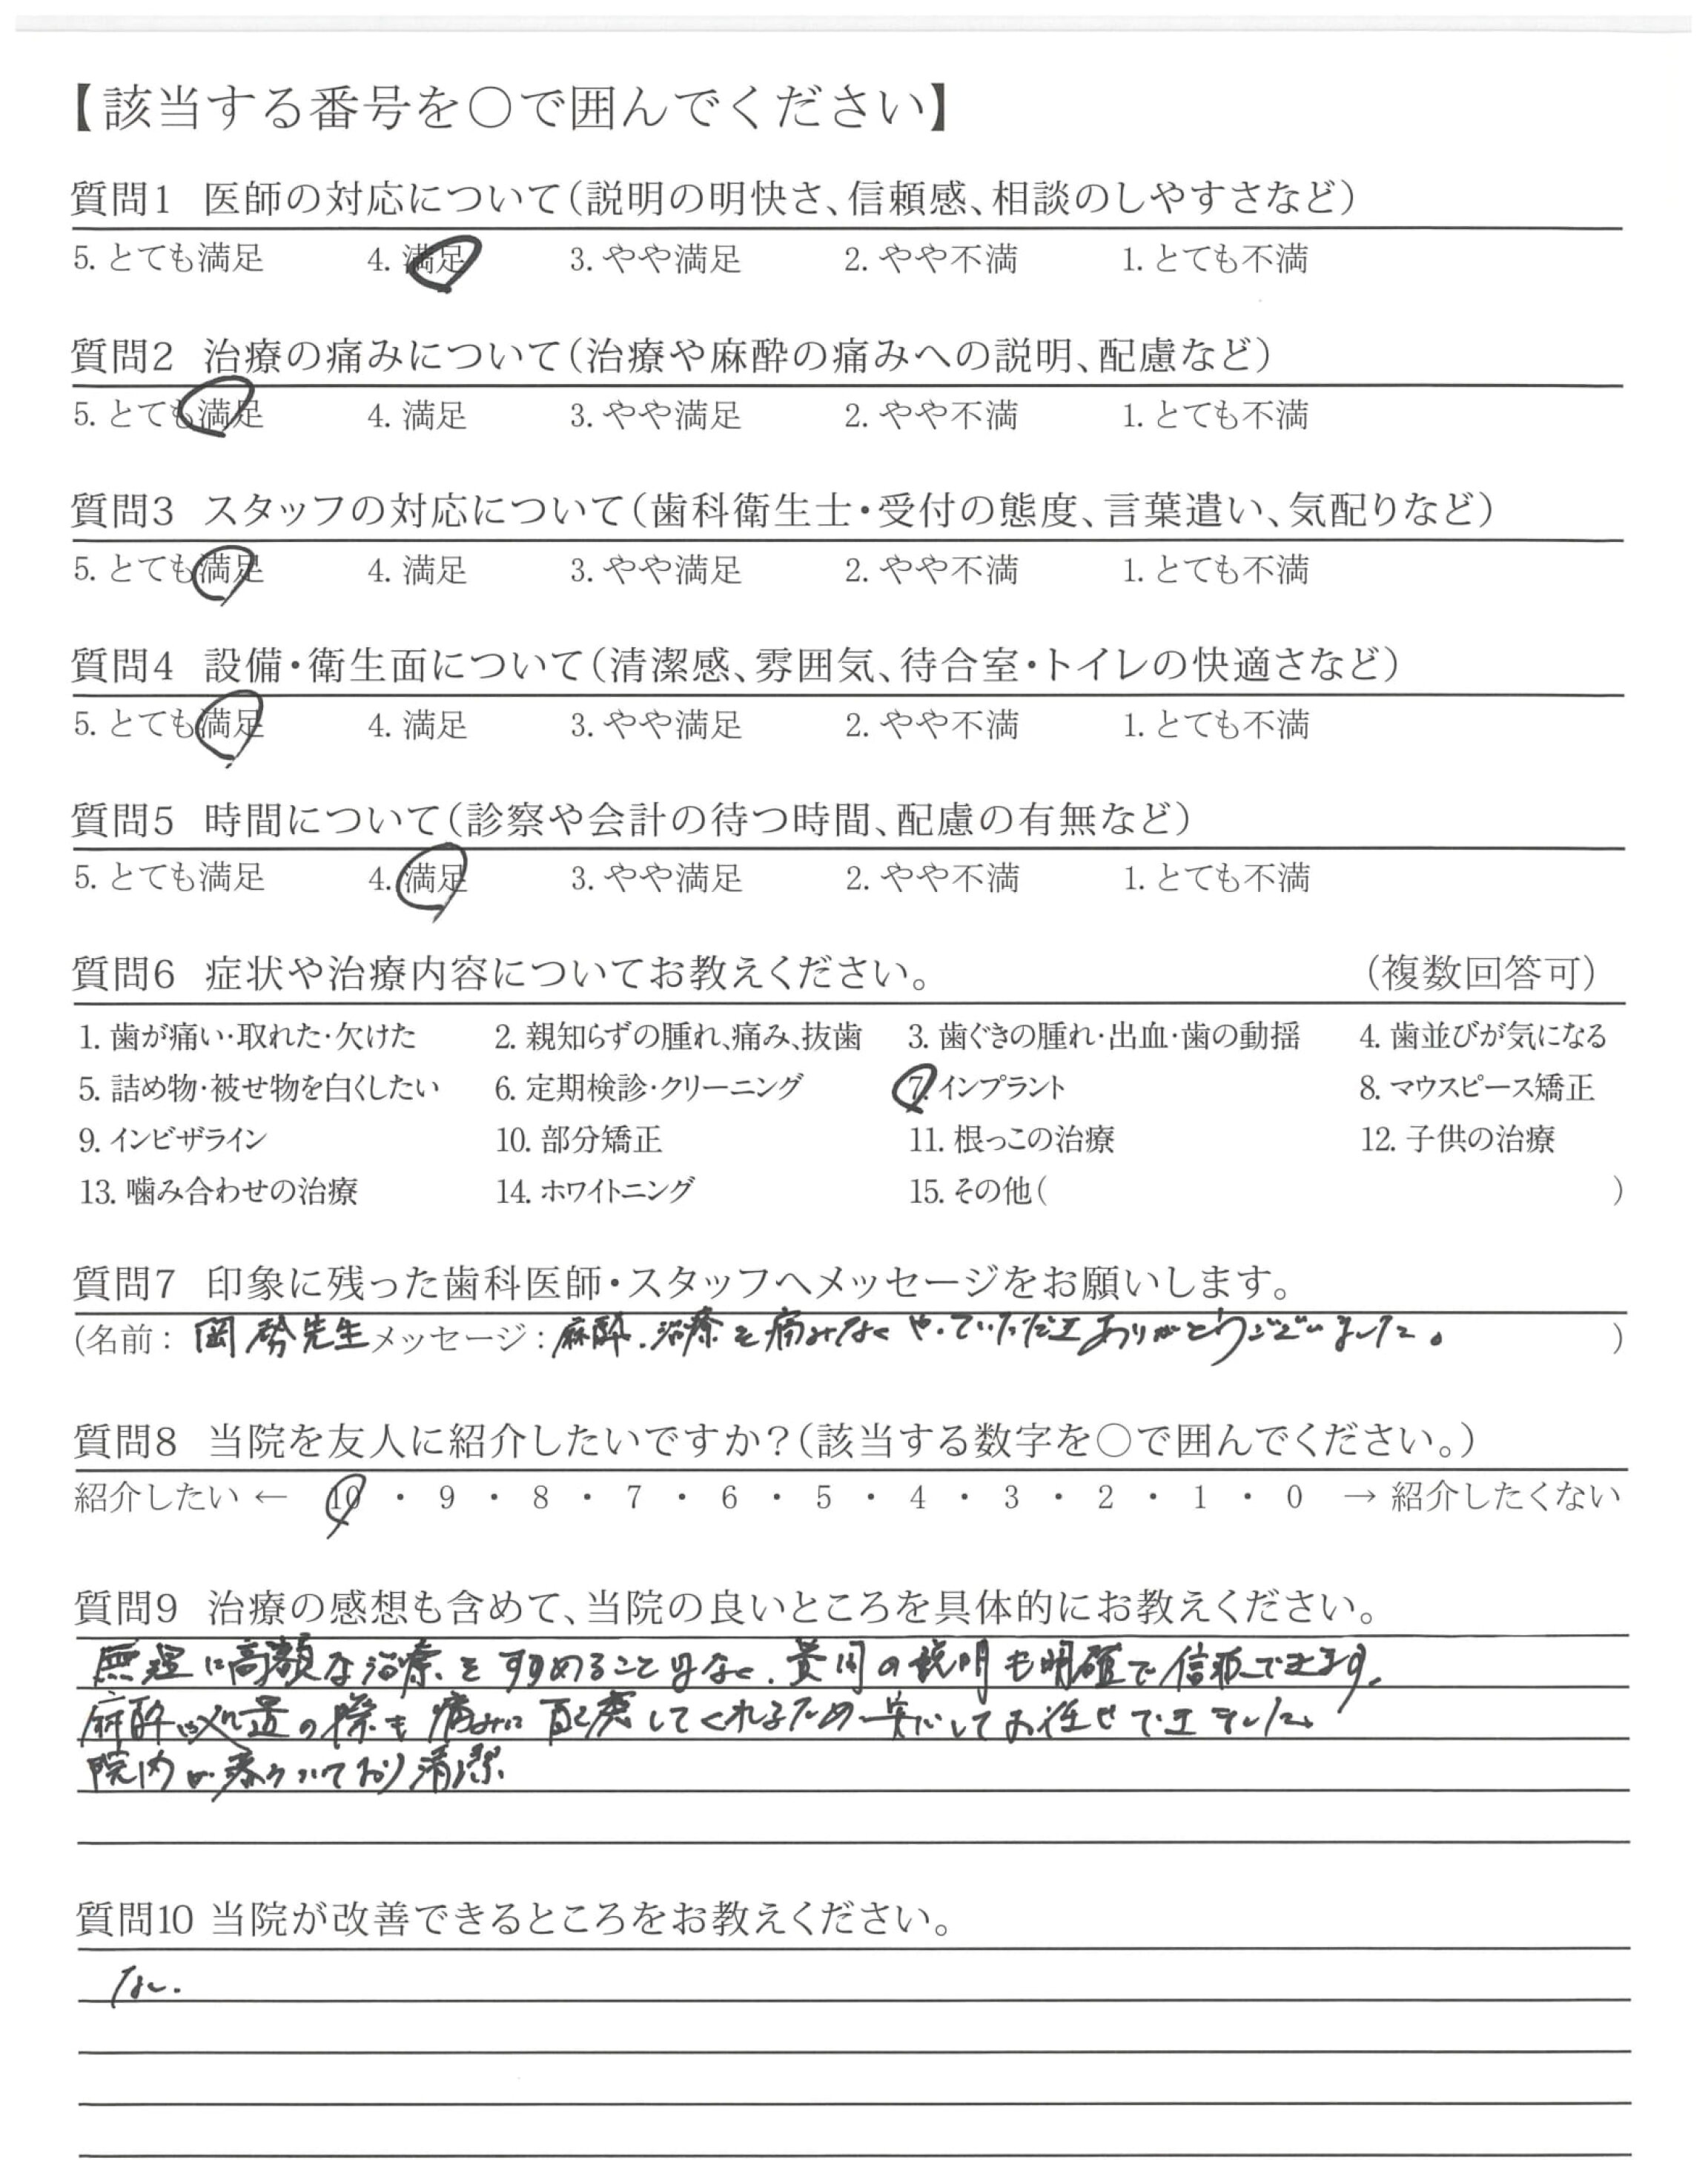 【該当する番号を○で囲んでください】
質問1 医師の対応について(説明の明快さ、信頼感、相談のしやすさなど)
5. とても満足 4. 満足 3. やや満足 2. やや不満 1. とても不満
質問2 治療の痛みについて(治療や麻酔の痛みへの説明、配慮など)
5. とても満足 4. 満足 3. やや満足 2. やや不満 1. とても不満
質問3 スタッフの対応について(歯科衛生士・受付の態度、言葉遣い、気配りなど)
5. とても満足 4. 満足 3. やや満足 2. やや不満 1. とても不満
質問4 設備・衛生面について(清潔感、雰囲気、待合室・トイレの快適さなど)
5. とても満足 4. 満足 3. やや満足 2. やや不満 1. とても不満
質問5 時間について(診察や会計の待つ時間、配慮の有無など)
5. とても満足 4. 満足 3. やや満足 2. やや不満 1. とても不満
質問6 症状や治療内容についてお教えください。 (複数回答可)
1. 歯が痛い・取れた・欠けた 2. 親知らずの腫れ、痛み、抜歯 3. 歯ぐきの腫れ・出血・歯の動揺 4. 歯並びが気になる
5. 詰め物・被せ物を白くしたい 6. 定期検診・クリーニング 7. インプラント 8. マウスピース矯正
9. インビザライン 10. 部分矯正 11. 根っこの治療 12. 子供の治療
13. 噛み合わせの治療 14. ホワイトニング 15. その他( )
質問7 印象に残った歯科医師・スタッフへメッセージをお願いします。
(名前: 岡 先生 メッセージ: 麻酔、治療を痛みなくやっていただきありがとうございました。 )
質問8 当院を友人に紹介したいですか?(該当する数字を○で囲んでください。)
紹介したい ← 10 ・ 9 ・ 8 ・ 7 ・ 6 ・ 5 ・ 4 ・ 3 ・ 2 ・ 1 ・ 0 → 紹介したくない
質問9 治療の感想も含めて、当院の良いところを具体的にお教えください。
無理に高額な治療をすすめることはなく、費用の説明も明確で信頼できます。
麻酔や処置の際も痛みに配慮してくれるため安心してお任せできました。
院内は落ついており清潔
質問10 当院が改善できるところをお教えください。
なし.